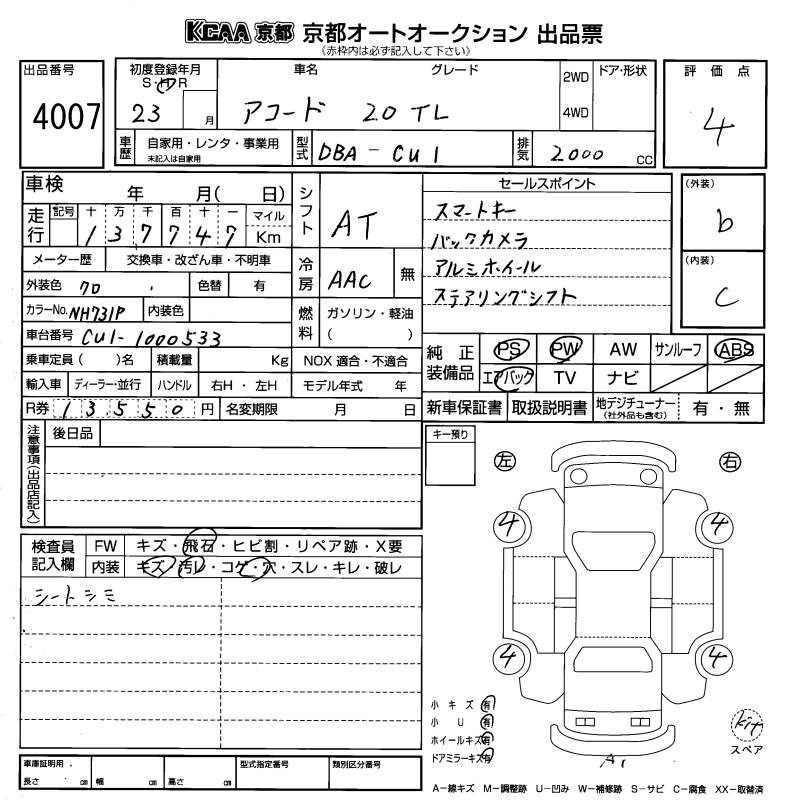 KCAA 京都 京都オートオークション 出品票
《赤枠内は必ず記入して下さい》
出品番号 4007
初度登録年月 車名 グレード 2WD ドア・形状 評価点
S・H・R
23 月 アコード 20TL 4WD 4
車歴 自家用・レンタ・事業用 型式 DBA-CU1 排気 2000 CC
未記入は自家用
車検 年 月( 日) シフト AT セールスポイント (外装) b
走行 記号 十 万 千 百 十 一 マイル スマートキー
1 3 7 7 4 7 Km バックカメラ
メーター歴 交換車・改ざん車・不明車 冷房 AAC 無 アルミホイール (内装) C
外装色 クロ 色替 有 ステアリングシフト
カラーNo. NH731P 内装色 燃料 ガソリン・軽油
車台番号 CU1-1000533 ( )
乗車定員( )名 積載量 Kg NOX 適合・不適合 純正装備品 PS PW AW サンルーフ ABS
輸入車 ディーラー・並行 ハンドル 右H・左H モデル年式 年 エアバック TV ナビ
R券 13550 円 名変期限 月 日 新車保証書 取扱説明書 地デジチューナー(社外品も含む) 有・無
注意事項(出品店記入) 後日品 キー預り
左 右
検査員記入欄 FW キズ・飛石・ヒビ割・リペア跡・X要 4 4
内装 キズ・汚レ・コゲ・穴・スレ・キレ・破レ
シートシミ
4 4
小キズ 有
小U 有
ホイールキズ 有 kit
ドアミラーキズ 有 スペア
A1
車庫証明用. 型式指定番号 類別区分番号
長さ cm 幅 cm 高さ cm
A-線キズ M-調整跡 U-凹み W-補修跡 S-サビ C-腐食 XX-取替済